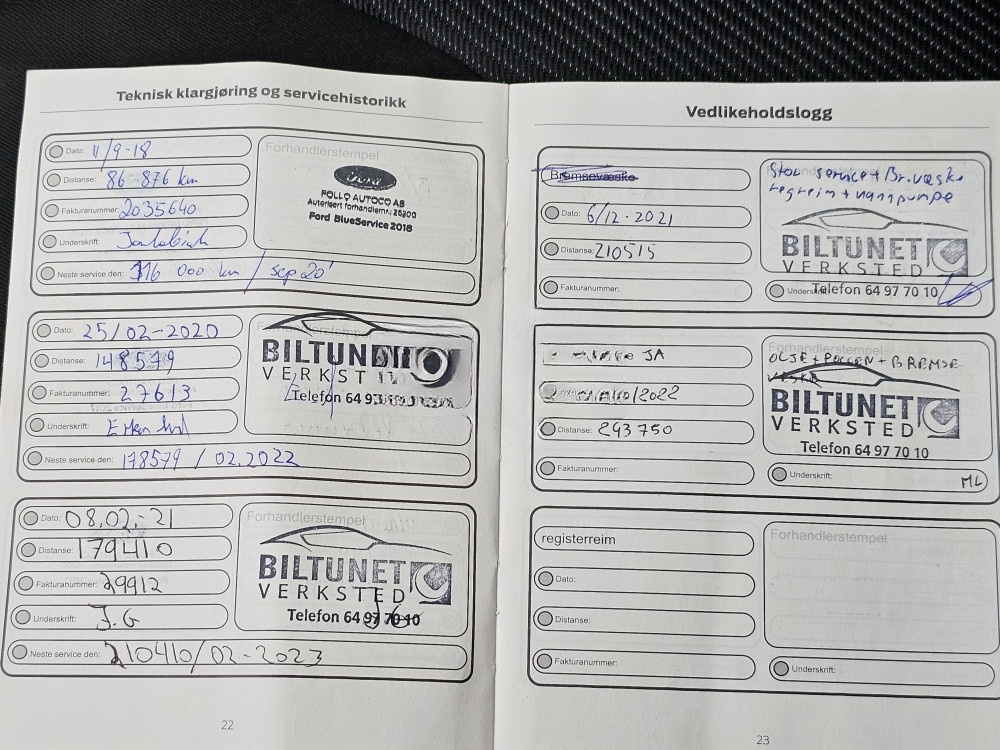 Teknisk klargjøring og servicehistorikk
Dato: 11/9-18
Distanse: 86 876 km
Fakturanummer: 2035640
Underskrift:
Neste service den: 116 000 km / sep 20'
Forhandlerstempel
Ford
FOLLO AUTOCO AS
Autorisert forhandlernr.
Ford BlueService 2018
Dato: 25/02-2020
Distanse: 148579
Fakturanummer: 27613
Underskrift:
Neste service den: 178579 / 02.2022
Forhandlerstempel
BILTUN
VERKST
Telefon 64 9
Dato: 08.02.-21
Distanse: 179410
Fakturanummer: 29912
Underskrift: J.G
Neste service den: 210410/02-2023
Forhandlerstempel
BILTUNET
VERKSTED
Telefon 64 97 70 10
22
Vedlikeholdslogg
Bremsevæske
Dato: 6/12-2021
Distanse: 210515
Fakturanummer:
Stor service + Br.væske
regreim + vannpumpe
BILTUNET
VERKSTED
Telefon 64 97 70 10
JA
/2022
Distanse: 243750
Fakturanummer:
Forhandlerstempel
OLJE + POLLEN + BREMSE
VESKE
BILTUNET
VERKSTED
Telefon 64 97 70 10
Underskrift: ML
registerreim
Dato:
Distanse:
Fakturanummer:
Forhandlerstempel
Underskrift:
23